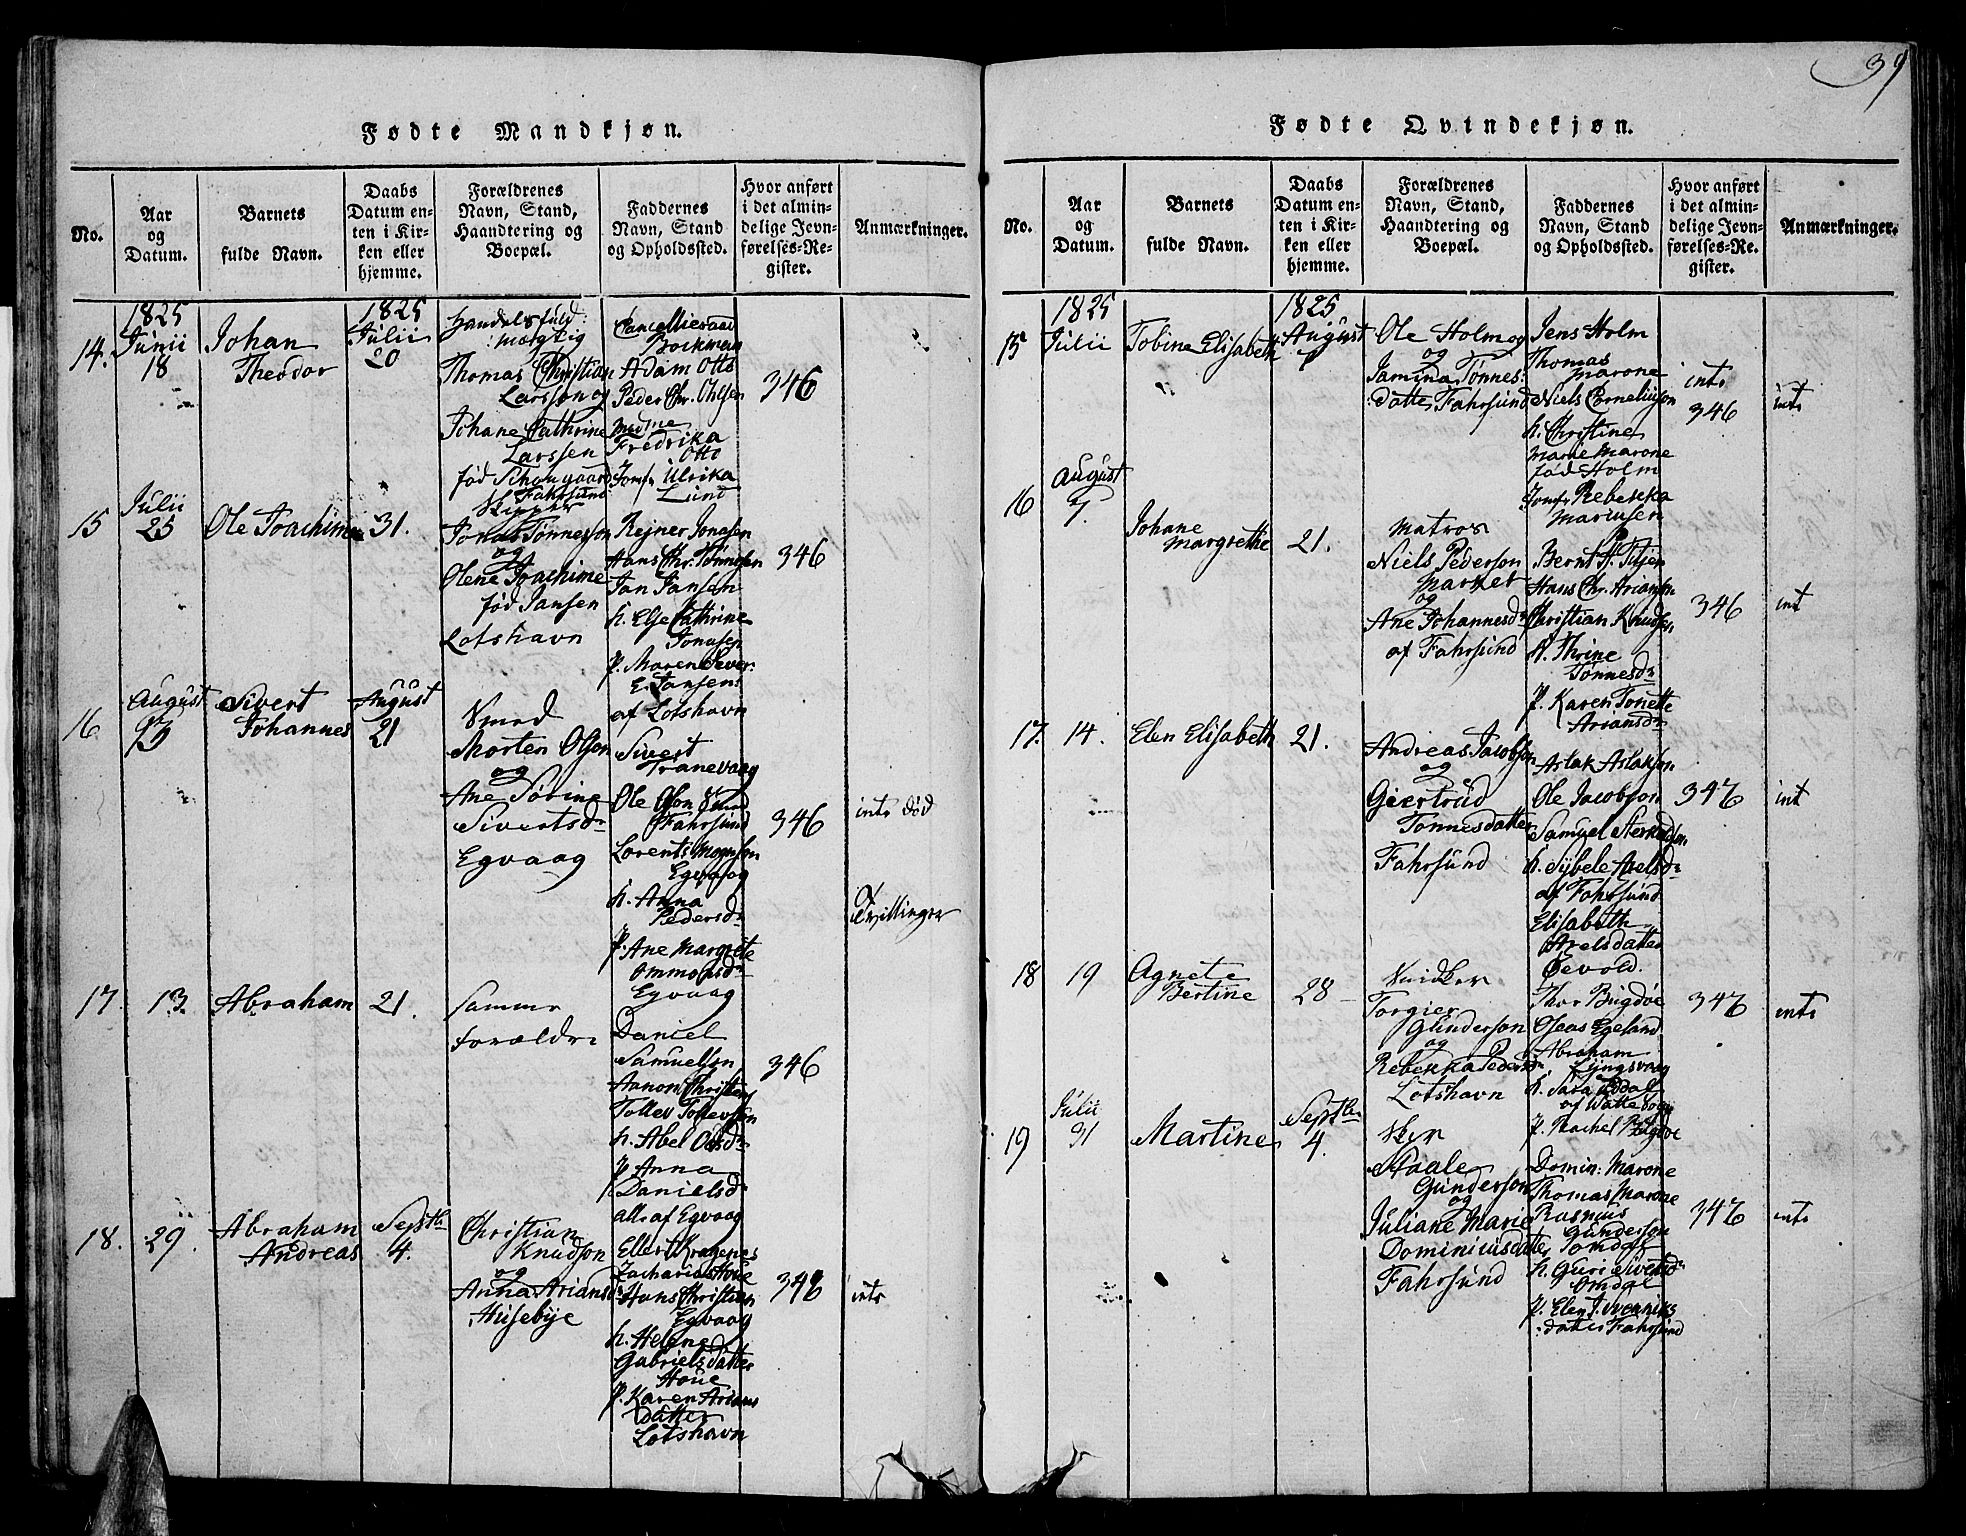 39
Fødte Mandkjøn.
No.
Aar
og
Datum.
Barnets
fulde Navn.
Daabs
Datum en-
ten i Kir-
ken eller
hjemme.
Forældrenes
Navn, Stand,
Haandtering og
Boepæl.
Faddernes
Navn, Stand
og Opholdssted.
Hvor anført
i det almin-
delige Jevn-
førelses-Re-
gister.
Anmærkninger.
14.
1825
Junii
18
Johan
Theodor
1825
Julii
20
Handelsfuld:
:mægtig
Thomas Christian
Larsson og
Johane Cathrine
Larssen
fød Schougaard
Fahrsund
Cancellieraad
Bockman
Adam Otto
Peder Chr. Ohlsen
Mdme
Fredrika
Otto
Jomf. Ulrika
Lund
346
15
Julii
25
Ole Joachim
31.
Skipper
Jonas Tønnesson
og
Olene Joachime
fød Jansen
Lotshavn
Rejner Jonasen
Hans Chr. Tønnesen
Jan Jansen
h. Else Cathrine
Jonasen
p. Maren Sever:
E. Jansen
af Lotshavn
346
16
August
13
Sivert
Johannes
August
21
Smed
Morten Olson
og
Ane Sørine
Sivertsdr
Egvaag
Sivert
Tranevaag
Ole Olson Smed
Fahrsund
Lorents Mognson
Egvaag
h. Anna
Pedersdr
p. Ane Margrete
Ommonsdr
Egvaag
346
intr død
Tvillinger
17.
13.
Abraham
21.
Samme
Forældre
Daniel
Samuelson
Aanon Christens
Tollev Tollevsen
h. Abel Olsdr
p. Anna
Danielsd
alle af Egvaag
346
18.
29.
Abraham
Andreas
Septbr
4.
Christian
Knudson
og
Anna Ariansdr
Husebye
Ellert Kragenes
Zacharias Hoüe
Hans Christian
Egvaag
h. Helene
Gabrielsdatter
Hoüe
p. Karen Arians
datter
Lotshavn
346
intr
Fødte Qvindekjøn.
No.
Aar
og
Datum.
Barnets
fulde Navn.
Daabs
Datum en-
ten i Kir-
ken eller
hjemme.
Forældrenes
Navn, Stand,
Haandtering og
Boepæl.
Faddernes
Navn, Stand
og Opholdssted.
Hvor anført
i det almin-
delige Jevn-
førelses-Re-
gister.
Anmærkninger.
15
1825
Julii
Tobine Elisabeth
1825
August
Ole Holm og
og
Jamina Tønnes:
:datter Fahrsund
Jens Holm
Thomas
Marone
Niels Corneliuson
h. Christine
Marie Marone
fød Holm
Jomf. Rebekka
Mariusen
intr
346
intr
16
August
7.
Johane
Margrethe
21.
Matros
Niels Pederson
Marker
og
Ane Johannesdr
af Fahrsund
Bernt A. Titjen
Hans Chr. Arianson
Christian Knudsen
h. Thrine
Tønnesdr
p. Karen Tonette
Ariansdr
346
int
17.
14.
Elen Elisabeth
21.
Andreas Jacobson
og
Giertrud
Tønnesdatter
Fahrsund
Aslak Aslakson
Ole Jacobson
Samuel Sterkadsen
h. Sybele Axelsdr
af Fahrsund
Elisabeth
Axelsdatter
Øevold.
347
int
18
19
Agnete
Bertine
28
Snidker
Torgier
Gunderson
og
Rebekka Pedersdr
Lotshavn
Thor Bugdøe
Oseas Egeland
Abraham
Lyngsvaag
h. Sara
p. Rachel Bugdøe
347
intr
19
Julii
31
Martine
Septbr
4.
Sker
Staale
Gunderson
og
Juliane Marie
Dominicusdatter
Fahrsund
Domin: Marone
Thomas Marone
Rasmus
Gunderson
Tomdal
h. Guri Sivertsdr
Omdal
p. Elen
:datter Fahrsund
347
intr